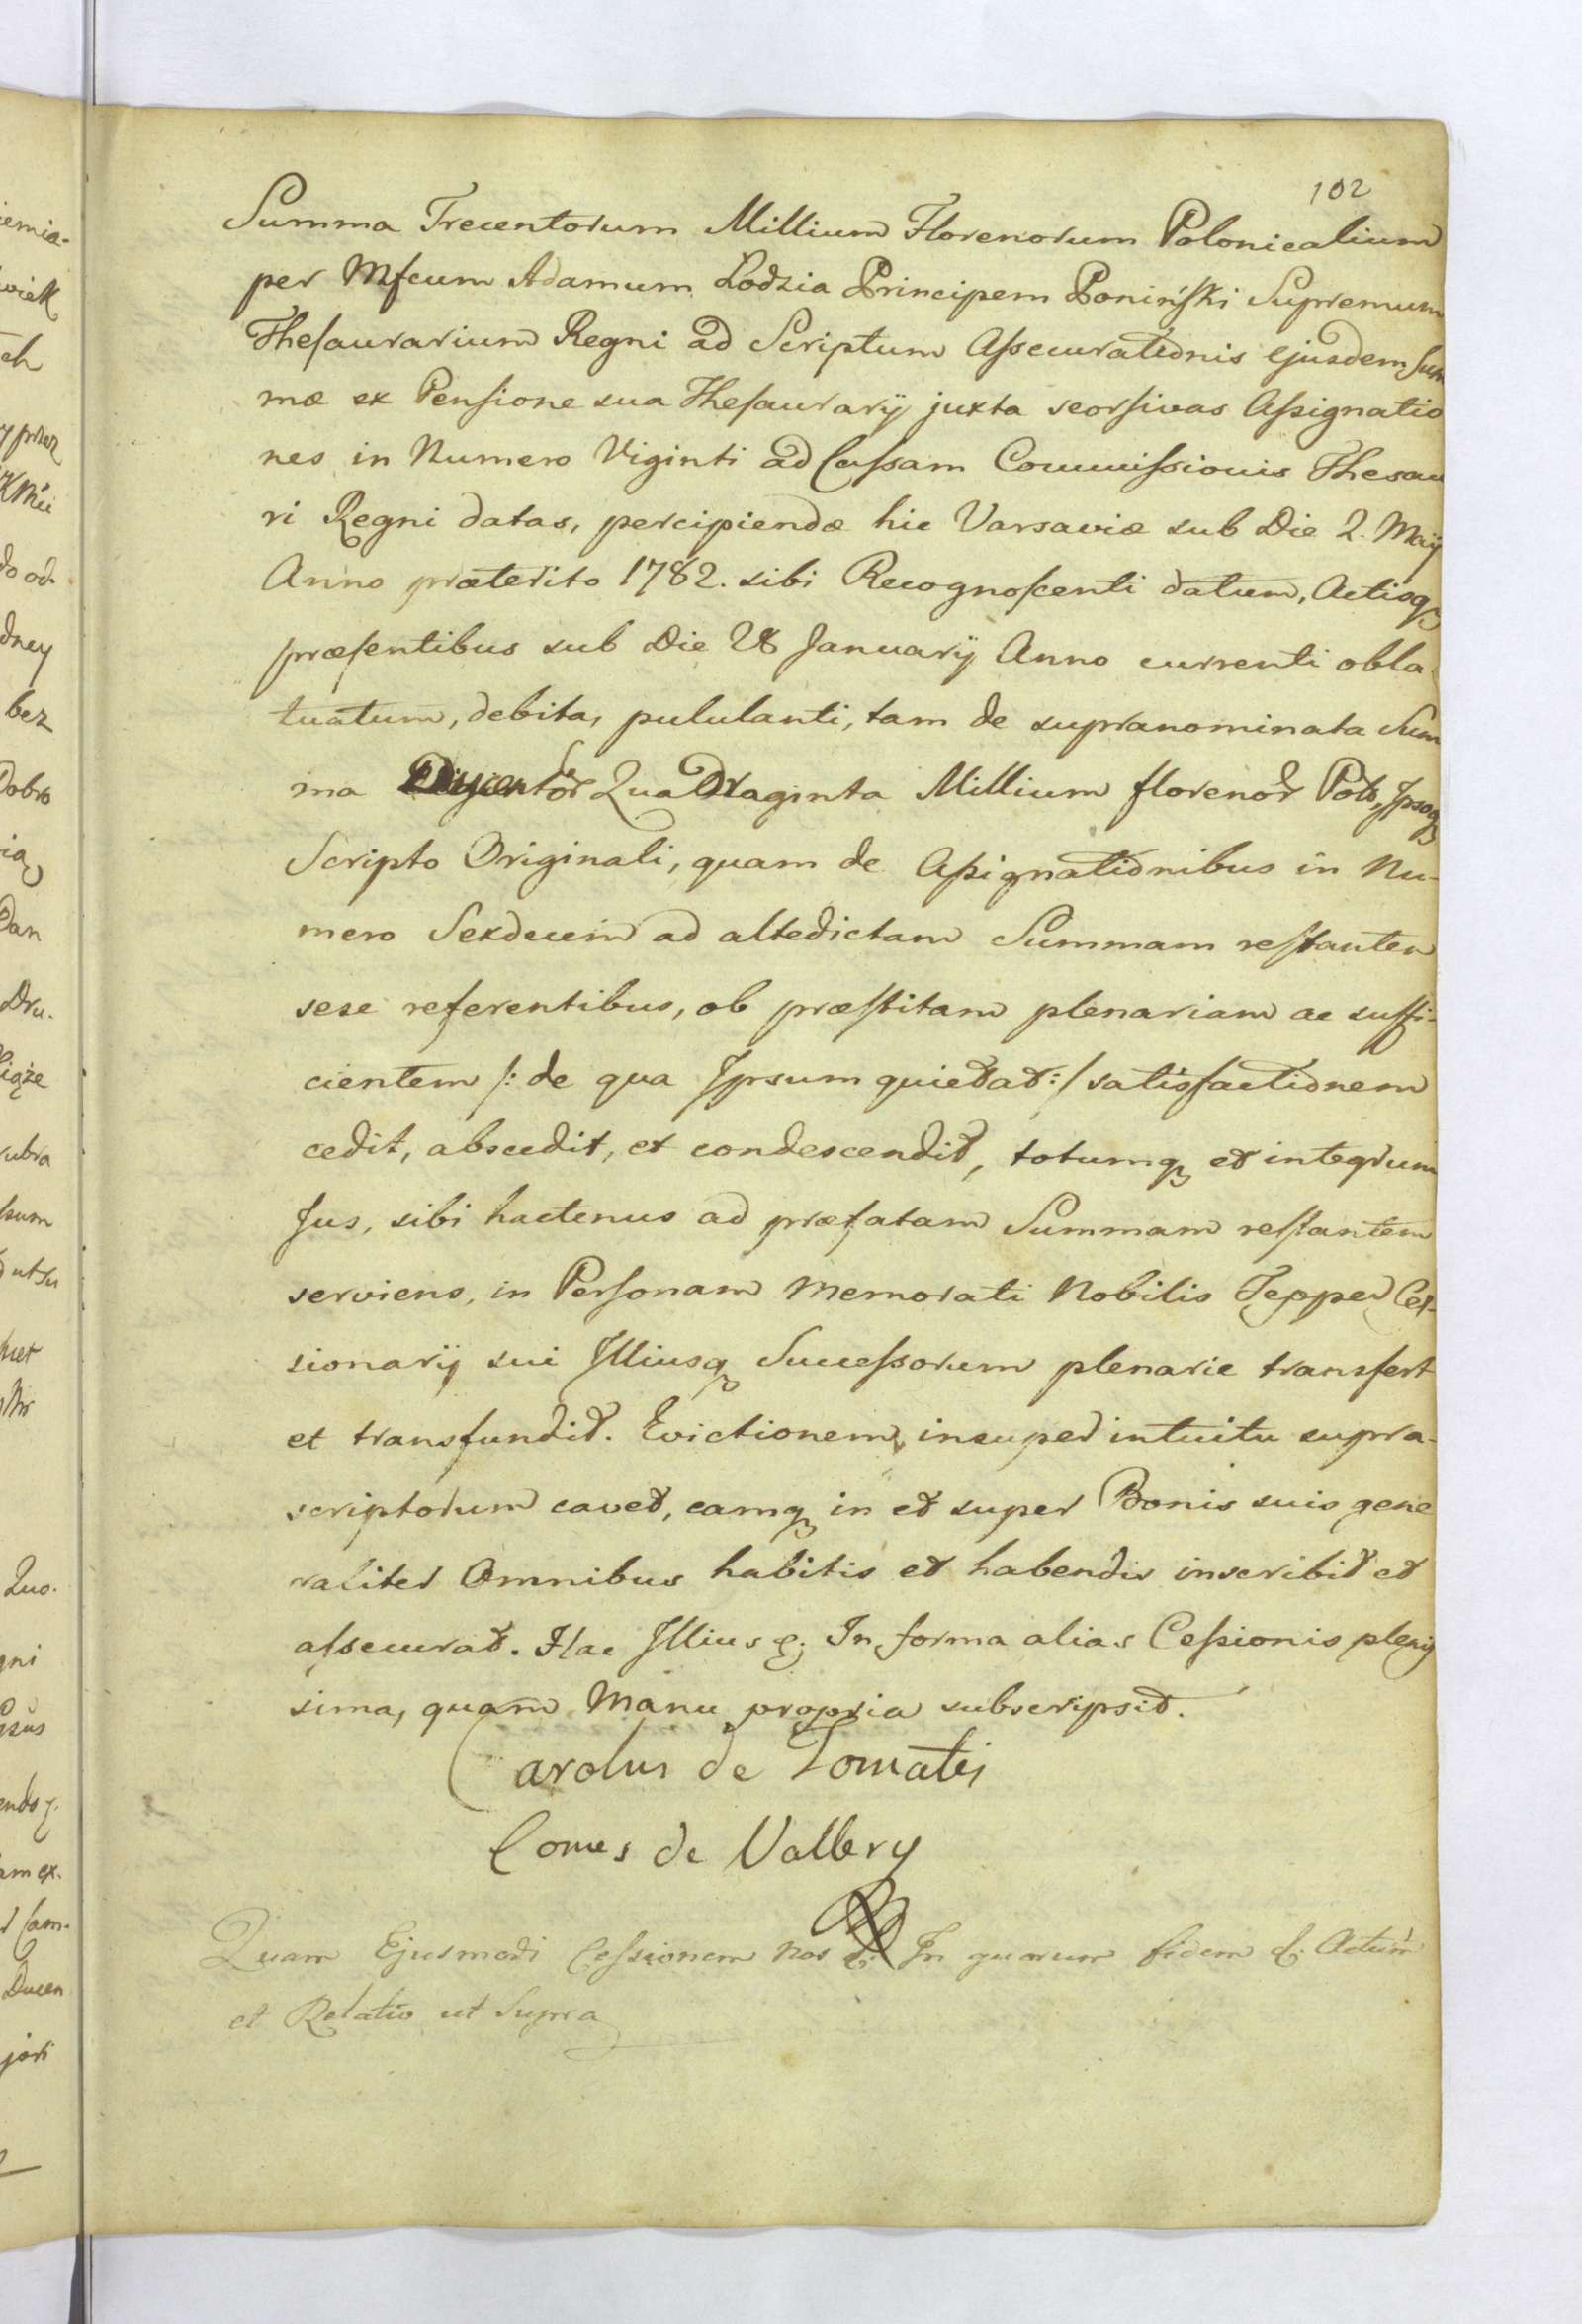 102
Summa Trecentorum Millium Florenorum Polonicalium
per Mfcum Adamum Lodzia Principem Poniński Supremum
Thesaurarium Regni ad Scriptum Assecurationis ejusdem Sum
mæ ex Pensione sua Thesaurarÿ juxta seorsivas Assignatio
nes in Numero Viginti ad Cassam Commissionis Thesau
ri Regni datas, percipiendæ hic Varsaviæ sub Die 2. Maÿ
Anno præterito 1782. sibi Recognoscenti datum, Actisq3
præsentibus sub Die 28 Januarÿ Anno currenti obla
tuatum, debita, pululanti, tam de supranominata Sum
ma Quadraginta Millium florenor Pol, Ipsoq3
Scripto Originali, quam de Assignationibus in Nu-
mero Sexdecim ad altedictam Summam restantem
sese referentibus, ob præstitam plenariam ac suffi-
cientem /: de qua Ipsum quietat :/ satisfactionem
cedit, abscedit, et condescendit, totumq3 et integrum
Jus, sibi hactenus ad præfatam Summam restantem
serviens, in Personam Memorati Nobilis Tepper Ces-
sionarÿ sui Illiusq3 Successorum plenarie transfert
et transfundit. Evictionem insuper intuitu supra-
scriptorum cavet, eamq3 in et super Bonis suis gene
raliter Omnibus habitis et habendis inscribit et
assecurat. Hac Illius &. In forma alias Cessionis plenis
sima, quam Manu propria subscripsit.
Carolus de Tomatis
Comes de Vallery
Quam Ejusmodi Cessionem nos &. In quorum fidem &. Actum
et Relatio ut Supra